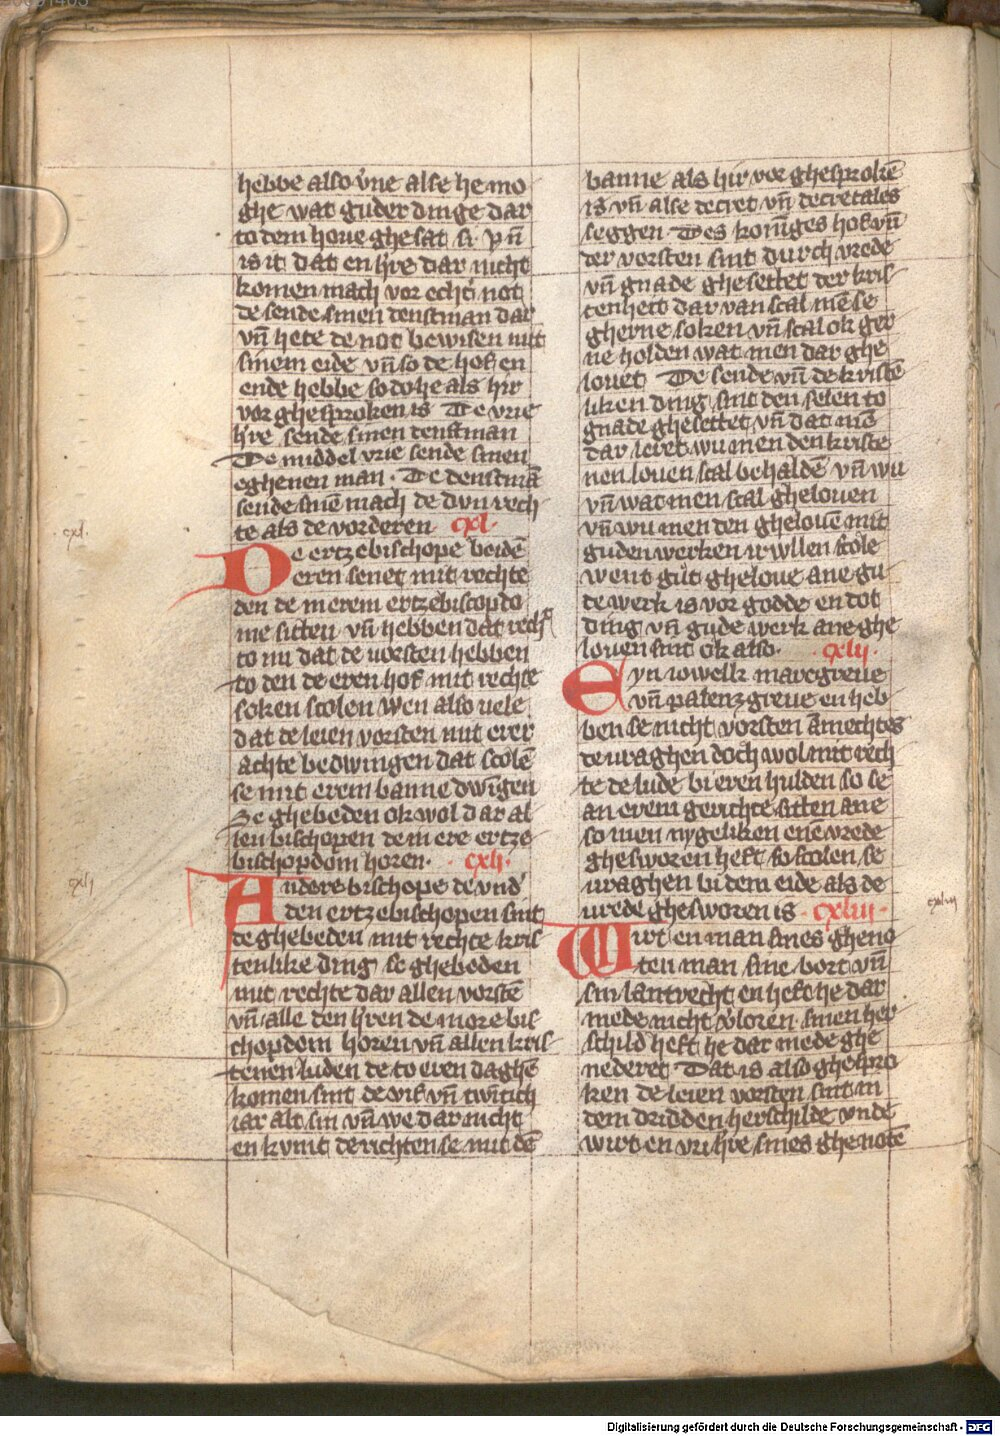 hebbe also verne alse he mo
ghe wat guder dinge dar
to dem houe ghesat si vn̄
is it dat en h're dar nicht
komen mach vor echt not
de sende sinen denstman dar
vn̄ hete de not bewisen mit
sinem eide vn̄ so de hof en
ende hebbe so do he als hir
vor ghesproken is De vrie
h're sende sinen denstman
De middel vrie sende sinen
eghenen man. De denstmā
sende sinē mach de dun rech
te als de vorderen cxl.
De ertzebischope beidē
eren senet mit rechte
den de in erem ertzebiscopdo
me sitten vn̄ hebben dat rech
to nu dat de vorsten hebben
to den de eren hof mit rechte
soken scolen wen also uele
dat de leien vorsten mit erer
achte bedwingen dat scolē
se mit erem banne dwīgen
Se ghebeden ok wol dar al
len bischopen dem in ere ertze
bischopdom horen. cxli.
Andere bischope de vnd'
den ertzebischopen sint
de ghebeden mit rechte kris
tenlike ding se ghebeden
mit rechte dar allen vorstē
vn̄ alle den h'ren de in ore bis
chopdom horen vn̄ allen kris
tenen luden de to eren daghē
komen sint de vif vn̄ twītich
iar alt sin vn̄ we dar nicht
en kvmt de richten se mit dē
banne als hir vor ghesprokē
is vn̄ alse decret vn̄ decretales
seggen Des konīges hof vn̄
der vorsten sint durch vrede
vn̄ gnade ghesettet der kris
tenheit dar van scal mē se
gherne soken vn̄ scal ok ger
ne holden wat men dar ghe
louet De sende vn̄ de kristē
liken ding sint den selen to
gnade ghesettet vn̄ dat mē
dar leret wu men den kriste
nen louen scal behaldē vn̄ wu
vn̄ wat men scal ghelouen
vn̄ wu men den ghelouē mit
guden werken irvvllen scole
went gut gheloue ane gu
de werk is vor godde en dot
ding vn̄ gude werk ane ghe
louen sint ok also. cxlii.
Eyn iowelk marcgreue
vn̄ palenzgreue en heb
ben se nicht vorsten āmechtes
de uraghen doch wol mit rech
te de lude bi eren hulden so se
an erem gerichte sitten ane
so men nygeliken enē vrede
ghesworen heft so scolen se
uraghen bi dem eide als de
urede ghesworen is. cxliii.
Wirt en man sines gheno
ten man sine bort vn̄
sin lantrecht en hefe he dar
mede nicht v'loren sinen her
schild heft he dar mede ghe
nederet Dat is also ghespro
ken de leien vorsten sint in
dem dridden herschilde vnde
wirt en vri h're sines ghenotē
cxl.
cxli
cxliii
Digitalisierung gefördert durch die Deutsche Forschungsgemeinschaft - DFG